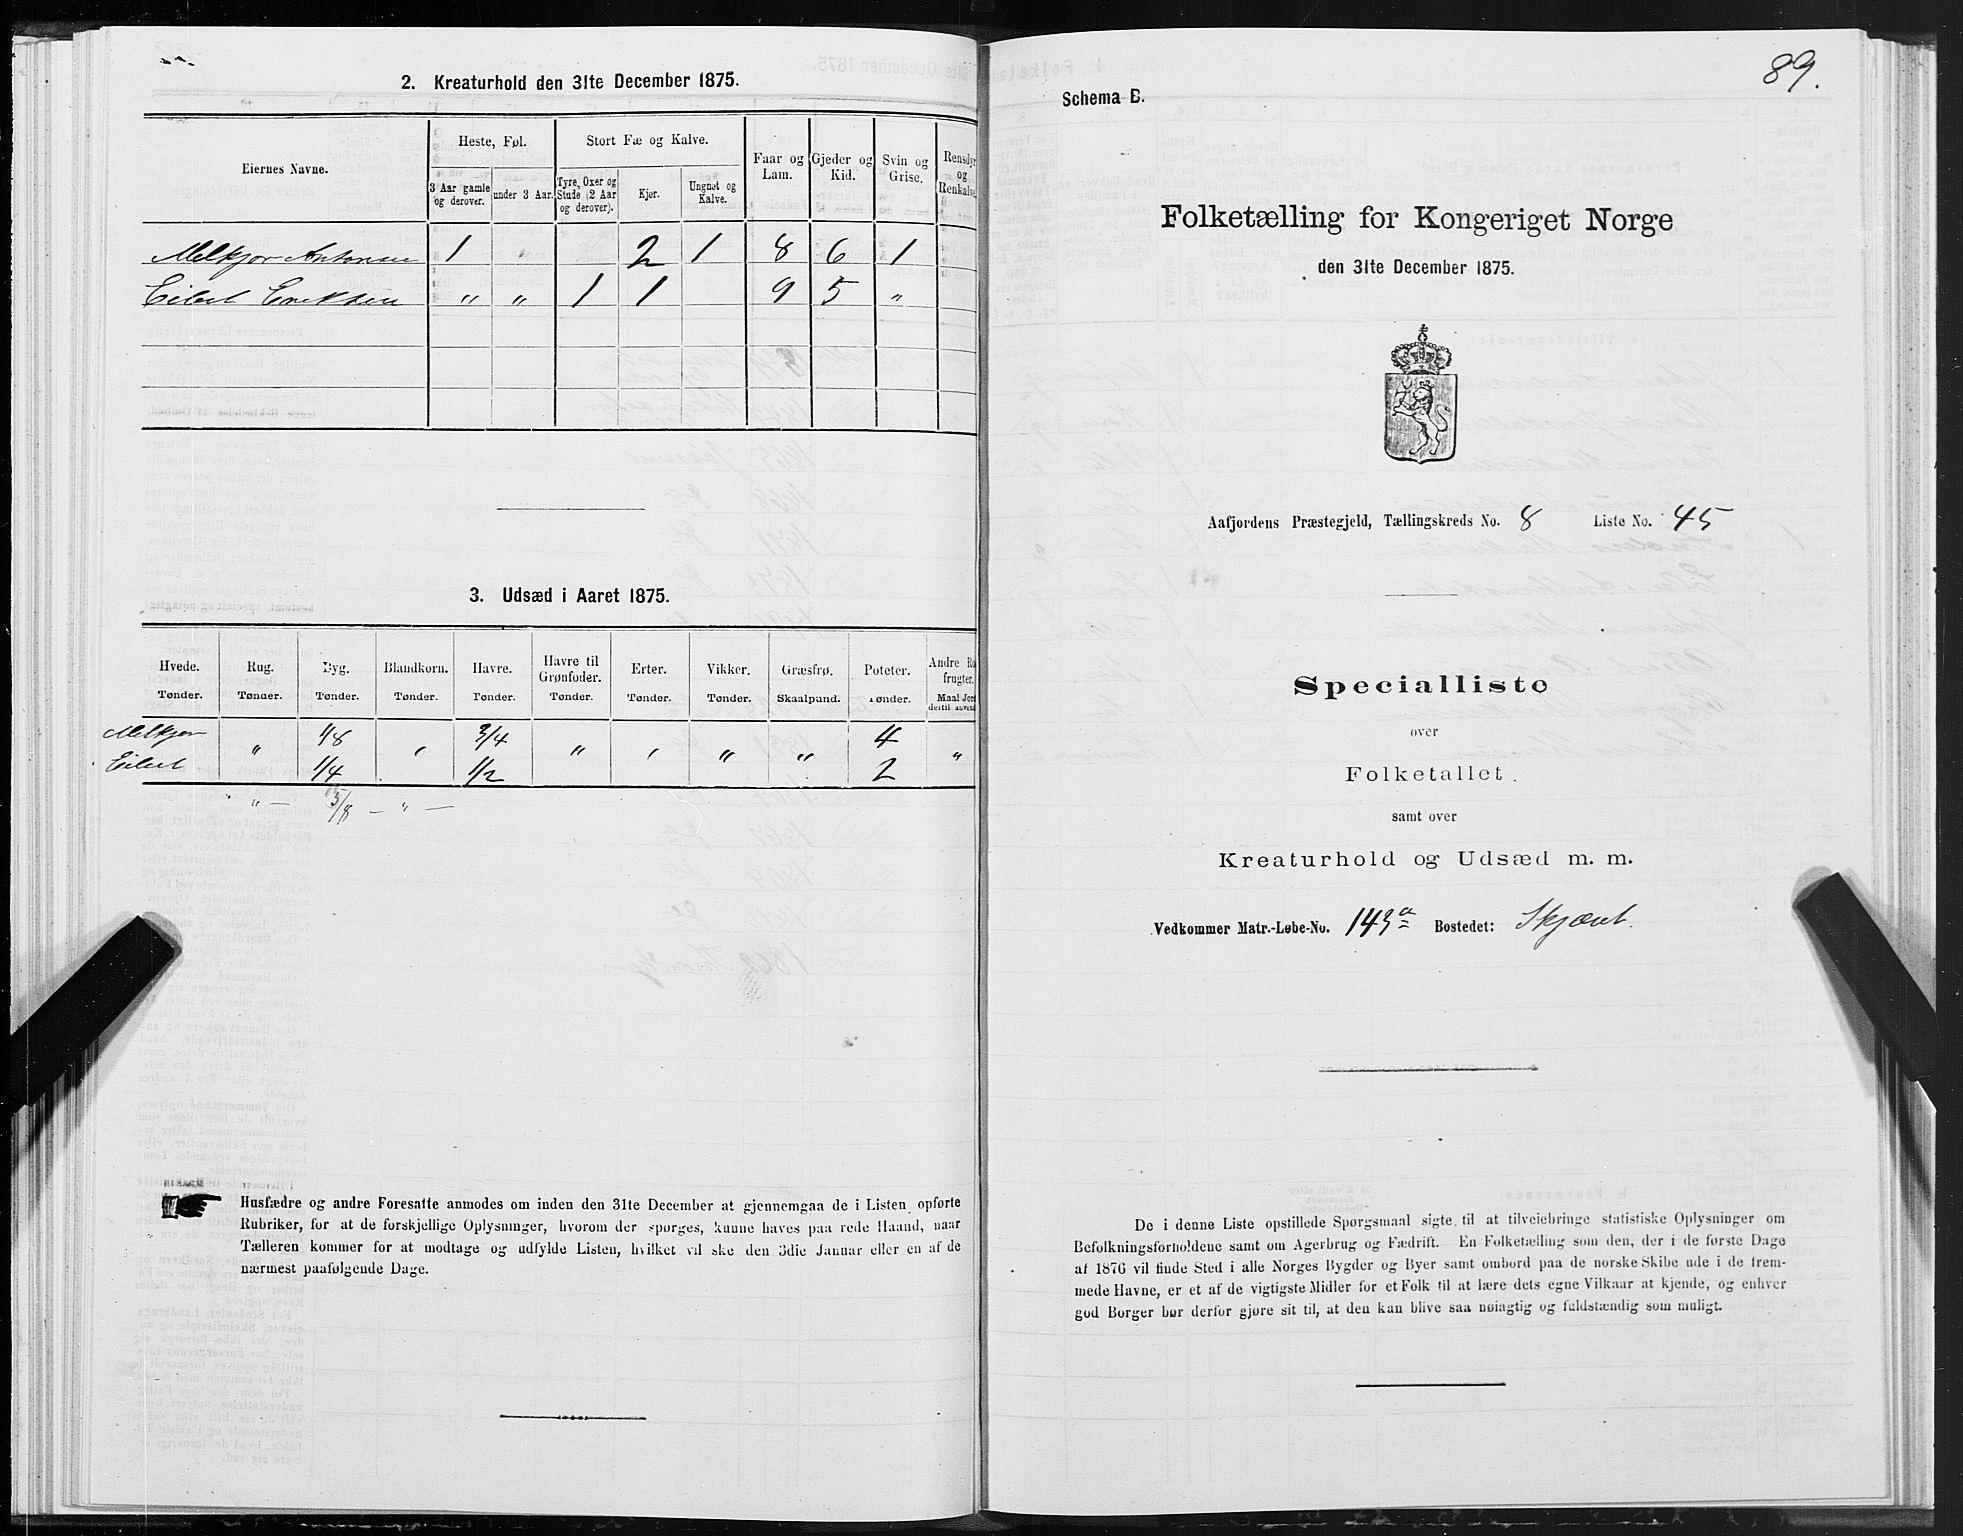 2. Kreaturhold den 31te December 1875.
Eiernes Navne. Heste, Føl. Stort Fæ og Kalve. Faar og Lam. Gjeder og Kid. Svin og Grise. Rensdyr og Renkalve.
3 Aar gamle og derover. under 3 Aar. Tyre, Oxer og Stude (2 Aar og derover). Kjør. Ungnøt og Kalve.
Melkjor Antonsen 1 " 2 1 8 6 1
Eilert Eriksen " " 1 1 9 5 "
3. Udsæd i Aaret 1875.
Hvede. Rug. Byg. Blandkorn. Havre. Havre til Grønfoder. Erter. Vikker. Græsfrø. Poteter. Andre Ro frugter.
Tønder. Tønder. Tønder. Tønder. Tønder. Tønder. Tønder. Tønder. Skaalpund. Tønder. Maal Jord dertil anvend
Melkjor " 1/8 " 3/4 " " " " 4 "
Eilert 1/4 1/2 2
" — 3/8 — " —
Husfædre og andre Foresatte anmodes om inden den 31te December at gjennemgaa de i Listen opførte
Rubriker, for at de forskjellige Oplysninger, hvorom der spørges, kunne haves paa rede Haand, naar
Tælleren kommer for at modtage og udfylde Listen, hvilket vil ske den 3die Januar eller en af de
nærmest paafølgende Dage.
89.
Schema B.
Folketælling for Kongeriget Norge
den 31te December 1875.
Aafjordens Præstegjeld, Tællingskreds No. 8 Liste No. 45
Specialliste
over
Folketallet
samt over
Kreaturhold og Udsæd m. m.
Vedkommer Matr.-Løbe-No. 143a Bostedet: Skjærvt.
De i denne Liste opstillede Spørgsmaal sigte til at tilveiebringe statistiske Oplysninger om
Befolkningsforholdene samt om Agerbrug og Fædrift. En Folketælling som den, der i de første Dage
af 1876 vil finde Sted i alle Norges Bygder og Byer samt ombord paa de norske Skibe ude i de frem-
mede Havne, er et af de vigtigste Midler for et Folk til at lære dets egne Vilkaar at kjende, og enhver
god Borger bør derfor gjøre sit til, at den kan blive saa nøiagtig og fuldstændig som muligt.